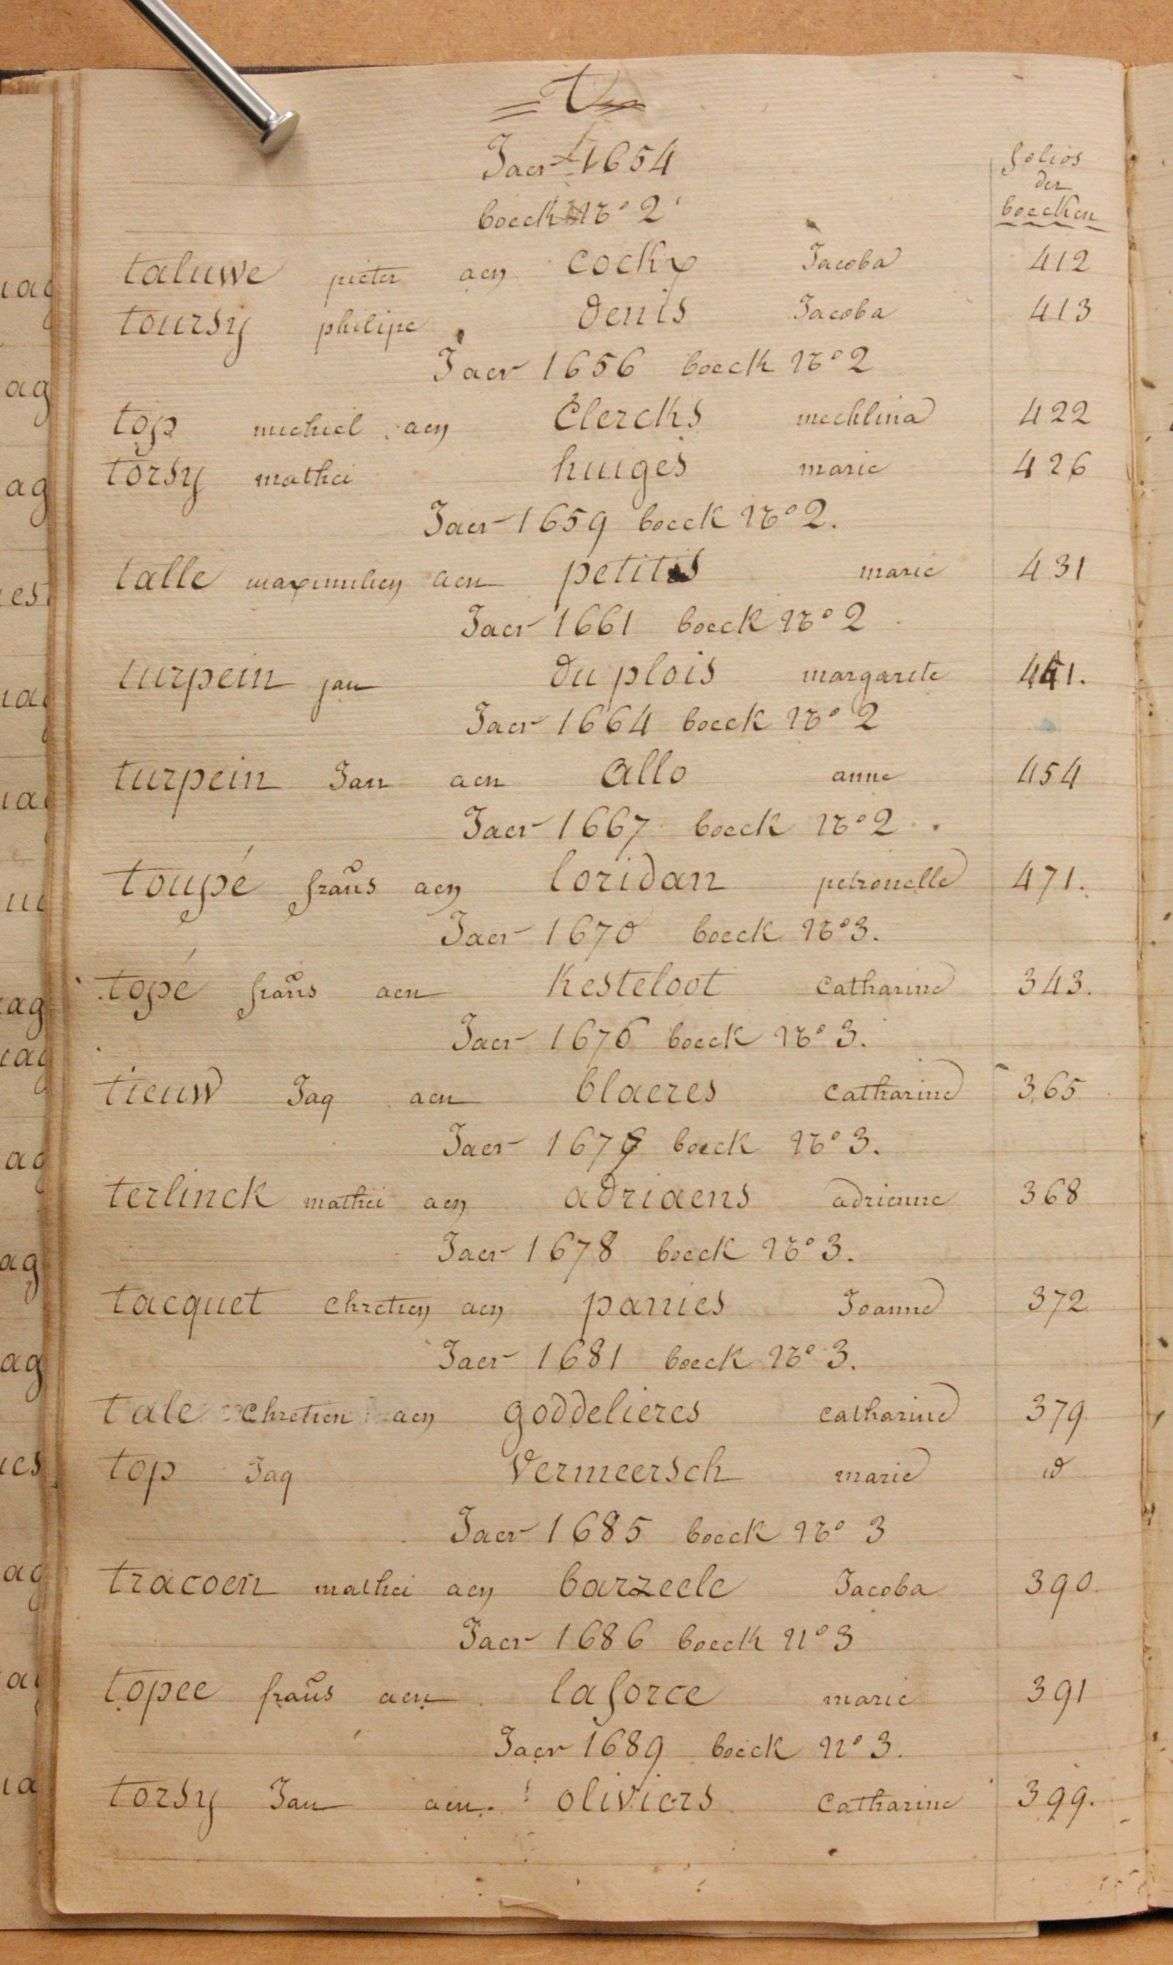 T
Jaer 1654
folios
der
boecken
boeck No 2
taluwe pieter aen cockx Jacoba 412
toursy philipe denis Jacoba 413
Jaer 1656 boeck No 2
top michiel aen Clercks mechlina 422
torsy mathei huiges marie 426
Jaer 1659 boeck No 2.
talle maximilien aen petit marie 431
Jaer 1661 boeck No 2
turpein jan du plois margarite
Jaer 1664 boeck No 2
turpein Jan aen allo anne 454
Jaer 1667 boeck No 2
toupé frans aen loridan petronelle 471.
Jaer 1670 boeck No 3.
topé frans aen kesteloot Catharine 343.
Jaer 1676 boeck No 3.
tieuw Jaq aen blaeres Catharine 365
Jaer boeck No 3.
terlinck mathei aen adriaens adrienne 368
Jaer 1678 boeck No 3.
tacquet chretien aen panies Joanne 372
Jaer 1681 boeck No 3.
tale Chretien aen goddelieres catharine 379
top Jaq Vermeersch marie id
Jaer 1685 boeck No 3
tracoen mathei aen barzeele Jacoba 390
Jaer 1686 boeck No 3
topee frans aen laforce marie 391
Jaer 1689 boeck No 3.
torsy Jan aen oliviers Catharine 399.